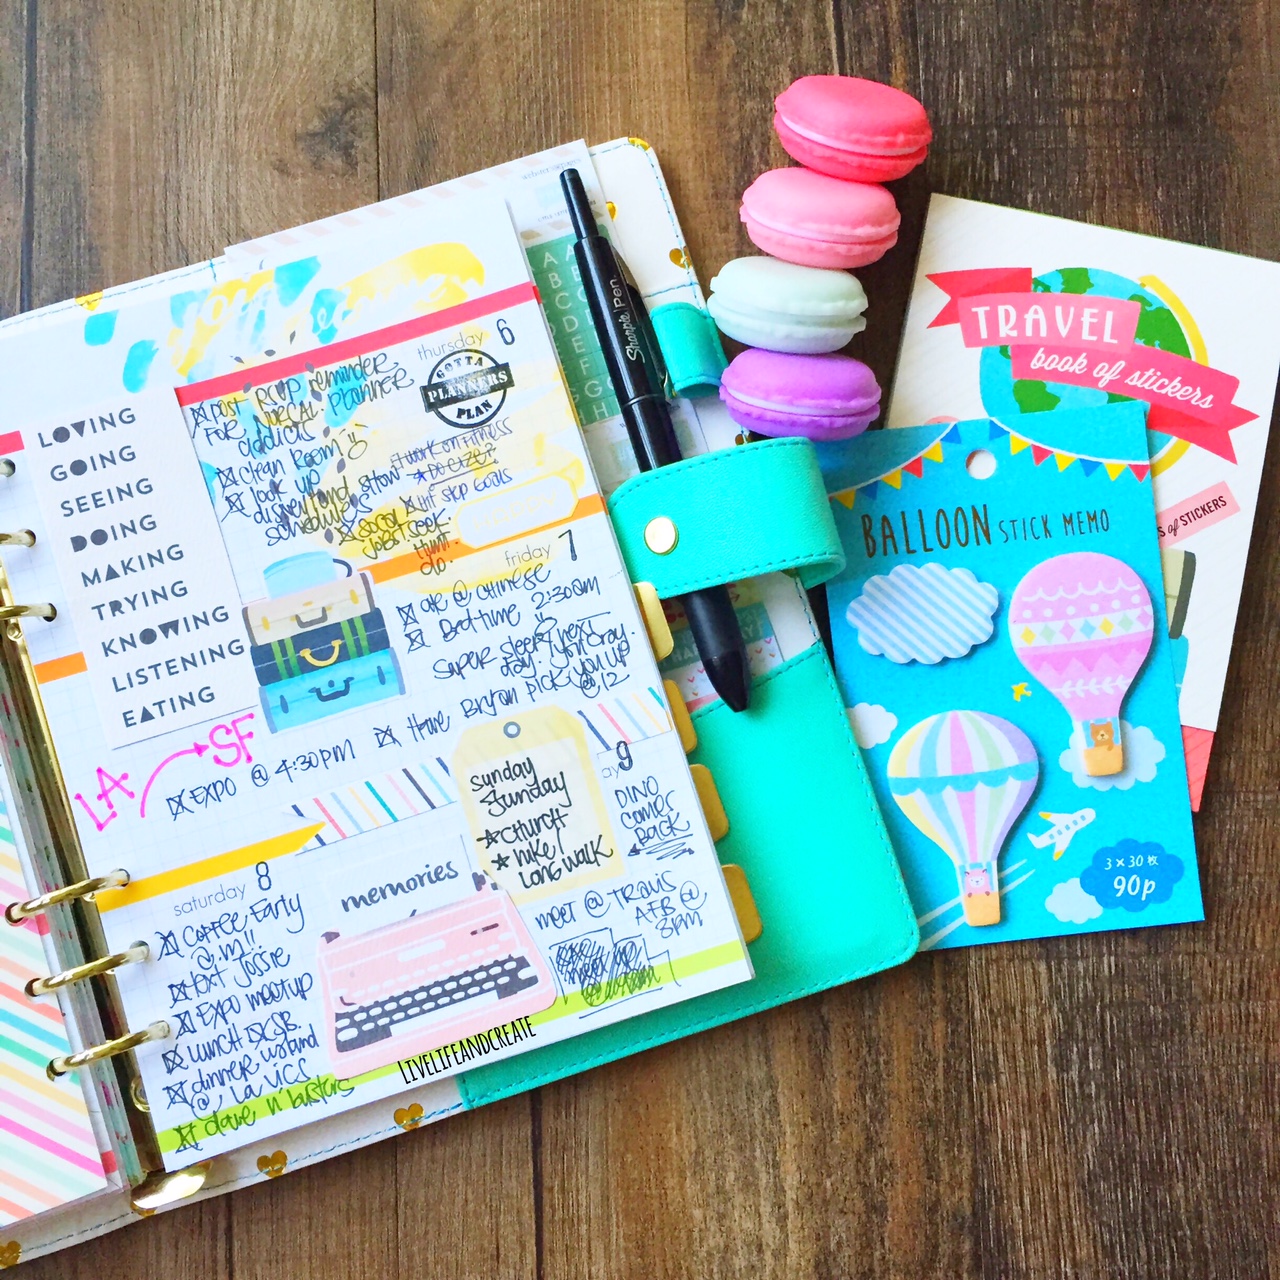 thursday 6
post RSVP reminder
FOR SOCAL Planner
addicts
clean room
look up
disneyland show
schedules
work on fitness
Hit step Goals
JOBS seek
Hunt
GOTTA
PLANNERS
PLAN
LOVING
GOING
SEEING
DOING
MAKING
TRYING
KNOWING
LISTENING
EATING
friday 7
@ CHINESE
Bedtime 2:30am
super sleepy next
day.
Have Bryan pick you up
@ 12
LA SF
EXPO @ 4:30PM
saturday 8
Coffee Early
@.m!!
text Jossie
EXPO meetup
LUNCH
dinner
@ LA VICS
dave n' busters
memories
sunday
Funday
CHURCH
Hike/
LONG WALK
9
DINO
comes
BACK
meet @ TRAVIS
AFB @
3PM
LIVELIFEANDCREATE
Sharpie Pen.
TRAVEL
book of stickers
of STICKERS
BALLOON STICK MEMO
3×30枚
90p